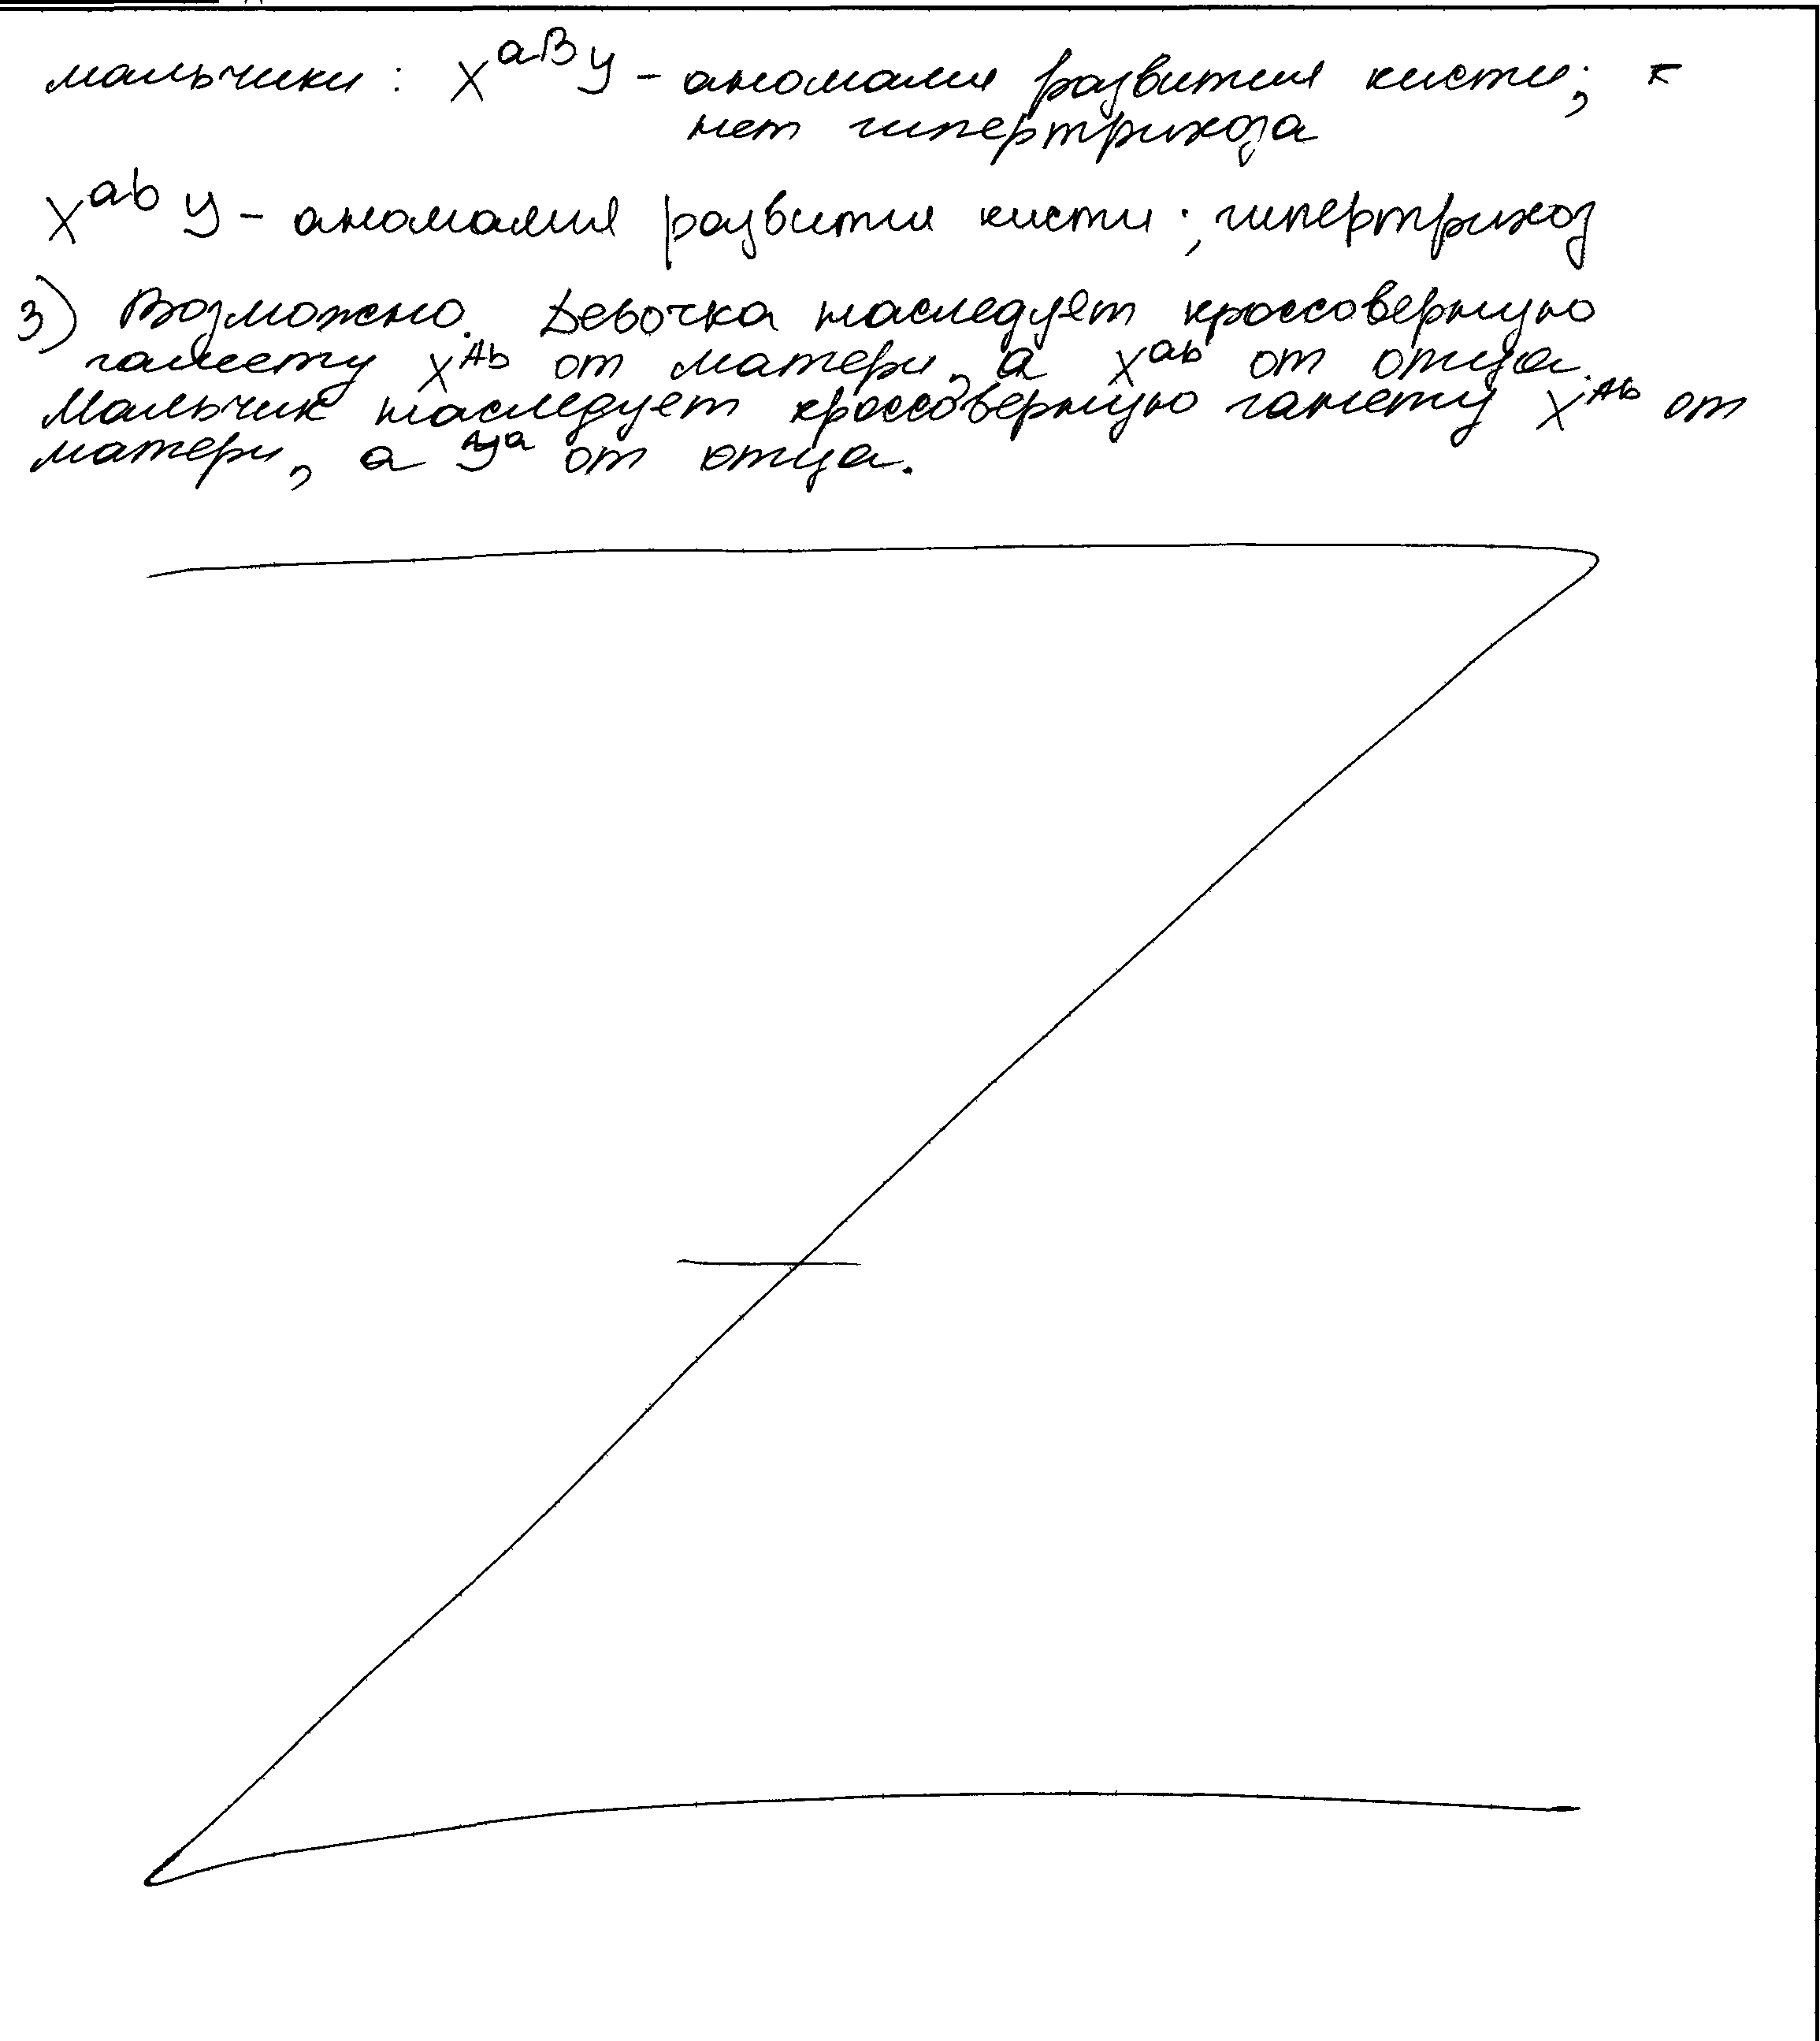 мальчики: X^aB У – аномалия развития кисти;
нет гипертрихоза
X^ab У – аномалия развития кисти; гипертрихоз
3) Возможно. Девочка наследует кроссоверную
гамету X^Ab от матери, а X^ab от отца.
Мальчик наследует кроссоверную гамету X^Ab от
матери, а У^a от отца.